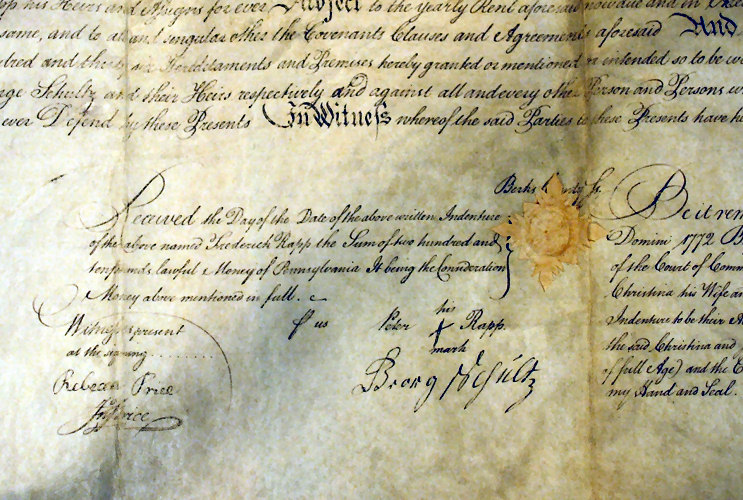 his Heirs and Assigns for ever Subject to the yearly Rent aforesaid now due and in
same, and to all and singular other the Covenants Clauses and Agreements aforesaid And
and Hereditaments and Premises hereby granted or mentioned or intended so to be
Schultz and their Heirs respectively and against all and every other Person and Persons
ever Defend by these Presents In Witness whereof the said Parties to these Presents have
Received the Day of the Date of the above written Indenture
of the above named Frederick Rapp the Sum of two hundred and
ten pounds lawful Money of Pennsylvania It being the Consideration
Money above mentioned in full.
Witness present
at the signing
Rebecca Price
us
Peter his Rapp
mark
Georg Schultz
Berks County Ss.
Be it
Domini 1772
of the Court of
Christina his Wife
Indenture to be their
the said Christina and
of full Age) and the
my Hand and Seal.